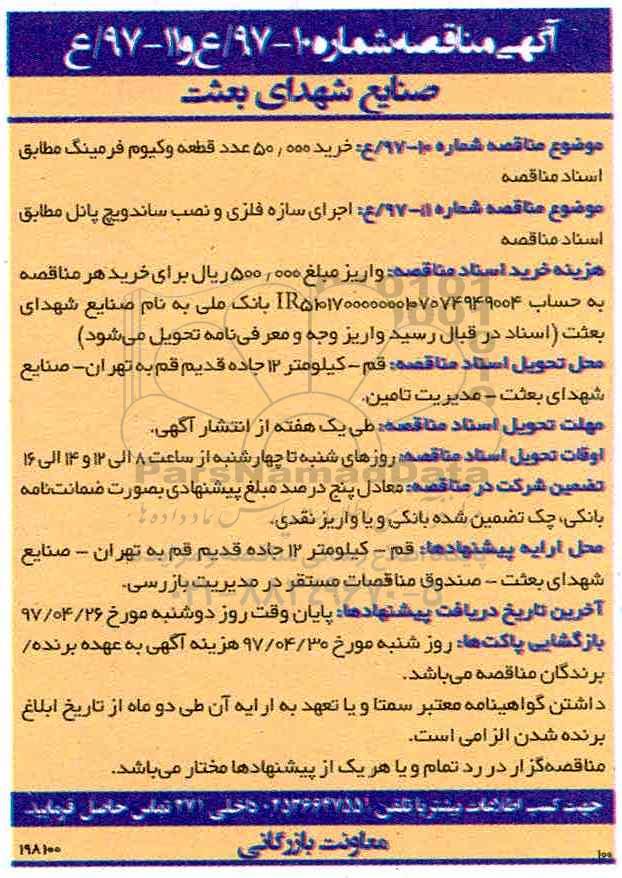 آگهی مناقصه شماره ۱۰-۹۷/ع و ۱۱-۹۷/ع
صنایع شهدای بعثت
موضوع مناقصه شماره ۱۰-۹۷/ع: خرید ۵۰,۰۰۰ عدد قطعه وکیوم فرمینگ مطابق
اسناد مناقصه
موضوع مناقصه شماره ۱۱-۹۷/ع: اجرای سازه فلزی و نصب ساندویچ پانل مطابق
اسناد مناقصه
هزینه خرید اسناد مناقصه: واریز مبلغ ۵۰۰,۰۰۰ ریال برای خرید هر مناقصه
به حساب بانک ملی به نام صنایع شهدای
بعثت (اسناد در قبال رسید واریز وجه و معرفی‌نامه تحویل می‌شود)
محل تحویل اسناد مناقصه: قم - کیلومتر ۱۲ جاده قدیم قم به تهران- صنایع
شهدای بعثت - مدیریت تامین.
مهلت تحویل اسناد مناقصه: طی یک هفته از انتشار آگهی.
اوقات تحویل اسناد مناقصه: روزهای شنبه تا چهارشنبه از ساعت ۸ الی ۱۲ و ۱۴ الی ۱۶
تضمین شرکت در مناقصه: معادل پنج درصد مبلغ پیشنهادی بصورت ضمانت‌نامه
بانکی، چک تضمین شده بانکی و یا واریز نقدی.
محل ارایه پیشنهادها: قم - کیلومتر ۱۲ جاده قدیم قم به تهران - صنایع
شهدای بعثت - صندوق مناقصات مستقر در مدیریت بازرسی.
آخرین تاریخ دریافت پیشنهادها: پایان وقت روز دوشنبه مورخ ۹۷/۰۴/۲۶
بازگشایی پاکت‌ها: روز شنبه مورخ ۹۷/۰۴/۳۰ هزینه آگهی به عهده برنده/
برندگان مناقصه می‌باشد.
داشتن گواهینامه معتبر سمتا و یا تعهد به ارایه آن طی دو ماه از تاریخ ابلاغ
برنده شدن الزامی است.
مناقصه‌گزار در رد تمام و یا هر یک از پیشنهادها مختار می‌باشد.
جهت کسب اطلاعات بیشتر با تلفن ۰۲۵۳۶۶۴۷۵۵۱ داخلی ۲۷۱ تماس حاصل فرمایید.
معاونت بازرگانی
۱۹۸۱۰۰
۱۰۰
ParsNamadData